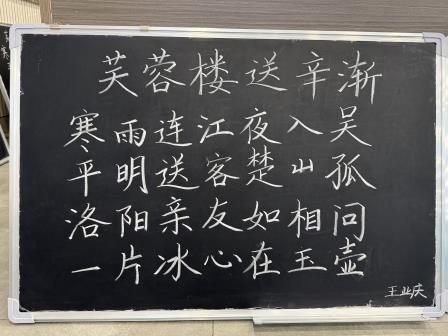 芙蓉楼送辛渐
寒雨连江夜入吴
平明送客楚山孤
洛阳亲友如相问
一片冰心在玉壶
王业庆